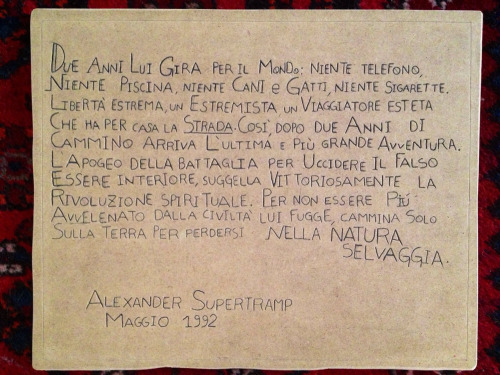 DUE ANNI LUI GIRA PER IL MONDO: NIENTE TELEFONO,
NIENTE PISCINA, NIENTE CANI e GATTI, NIENTE SIGARETTE.
LIBERTÀ ESTREMA, UN ESTREMISTA UN VIAGGIATORE ESTETA
CHE HA PER CASA LA STRADA. COSÌ DOPO DUE ANNI DI
CAMMINO ARRIVA L'ULTIMA E PIÙ GRANDE AVVENTURA.
L'APOGEO DELLA BATTAGLIA PER UCCIDERE IL FALSO
ESSERE INTERIORE, SUGGELLA VITTORIOSAMENTE LA
RIVOLUZIONE SPIRITUALE. PER NON ESSERE PIÙ
AVVELENATO DALLA CIVILTÀ LUI FUGGE, CAMMINA SOLO
SULLA TERRA PER PERDERSI NELLA NATURA
SELVAGGIA.
ALEXANDER SUPERTRAMP
MAGGIO 1992